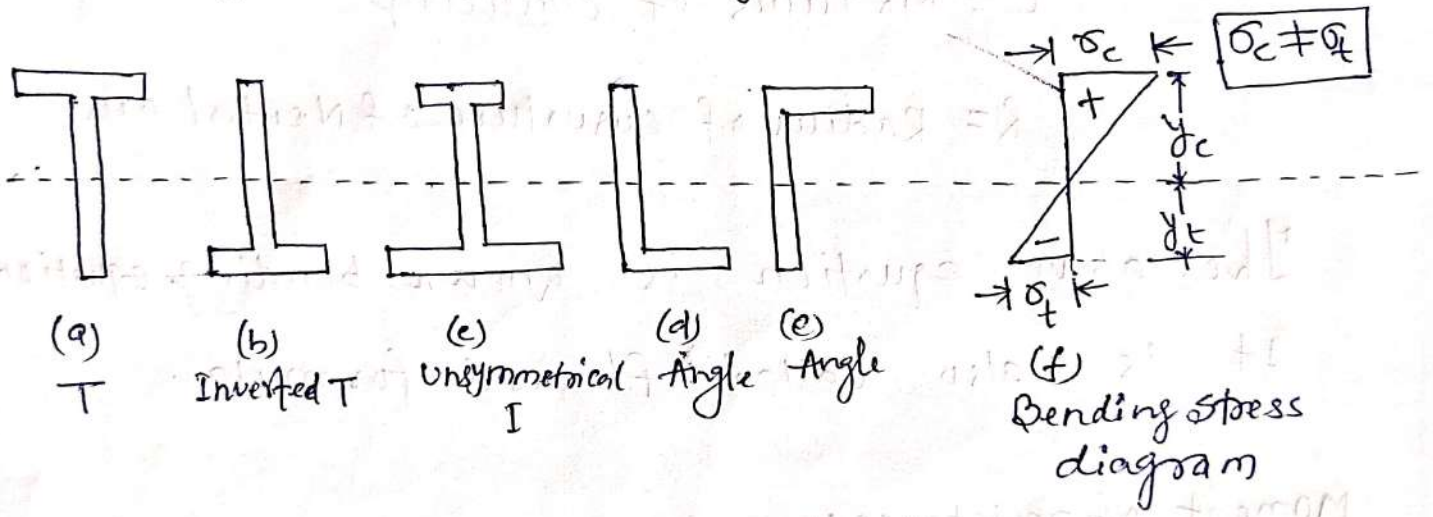 σc
σc ≠ σt
+
yc
yt
−
σt
(a)
T
(b)
Inverted T
(c)
Unsymmetrical
I
(d)
Angle
(e)
Angle
(f)
Bending stress
diagram